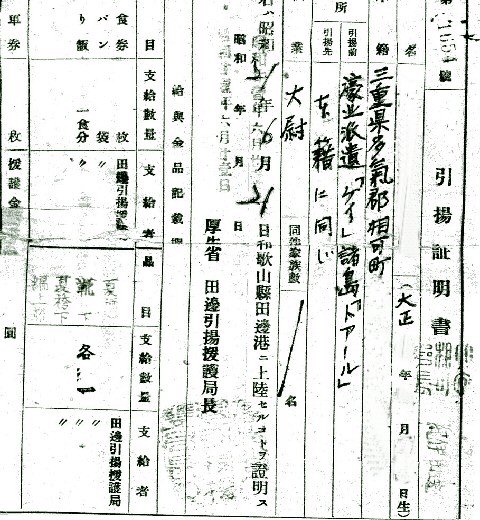 引揚証明書
(大正 年 月 日生)
名
籍 三重県多氣郡相可町
引揚前 濠北派遣「ケイ」諸島「ドアール」
所 引揚先 本籍に同じ
業 大尉
同伴家族數 名
昭和21年6月21日和歌山縣田邊港ニ上陸セルコトヲ證明ス
昭和 年 月 日
厚生省 田邊引揚援護局長
給與金品記載欄
目 支給數量 支給者
食券 枚 田邊引揚援護局
パン 袋 〃
り飯 一食分 〃
車券 枚
援護金 圓
品目 支給數量 支給者
各一 田邊引揚援護局
〃
〃